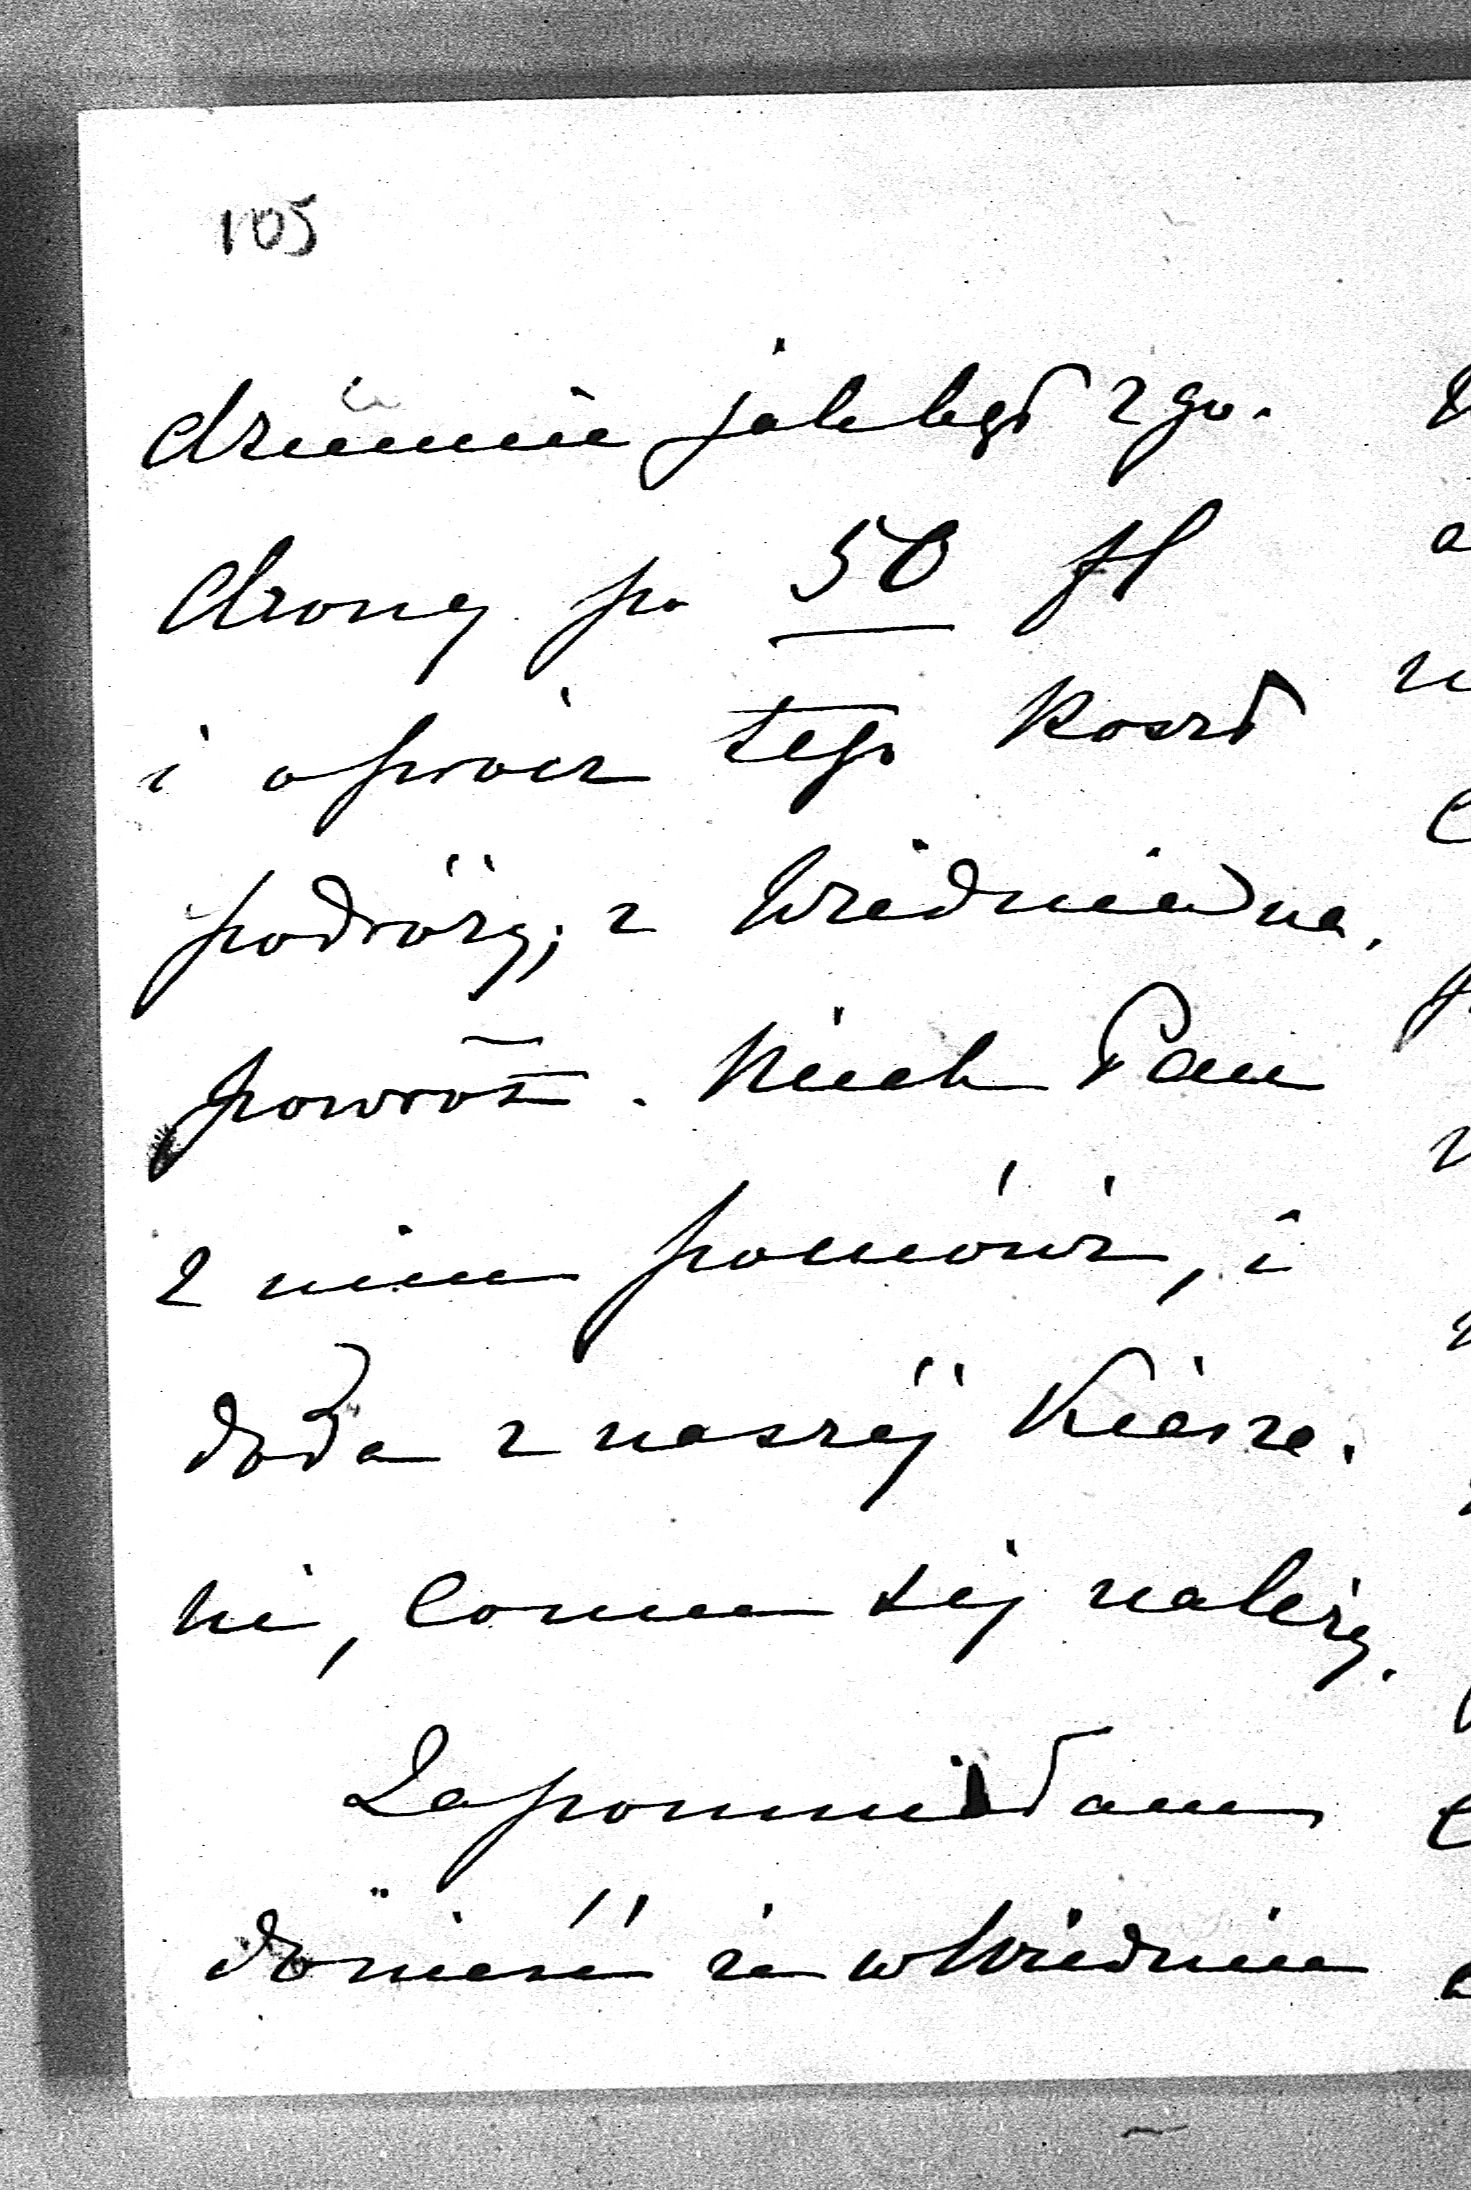 105
dziennie jak był zgo-
dzony po 50 fl
i oprócz tego koszt
podróży, z Wiednia na
powrót. Niech Pani
z nim pomówi, i
doda z naszéj kiesze-
ni, co mu się należy.
Zapomniałam
donieść że w Wiedniu